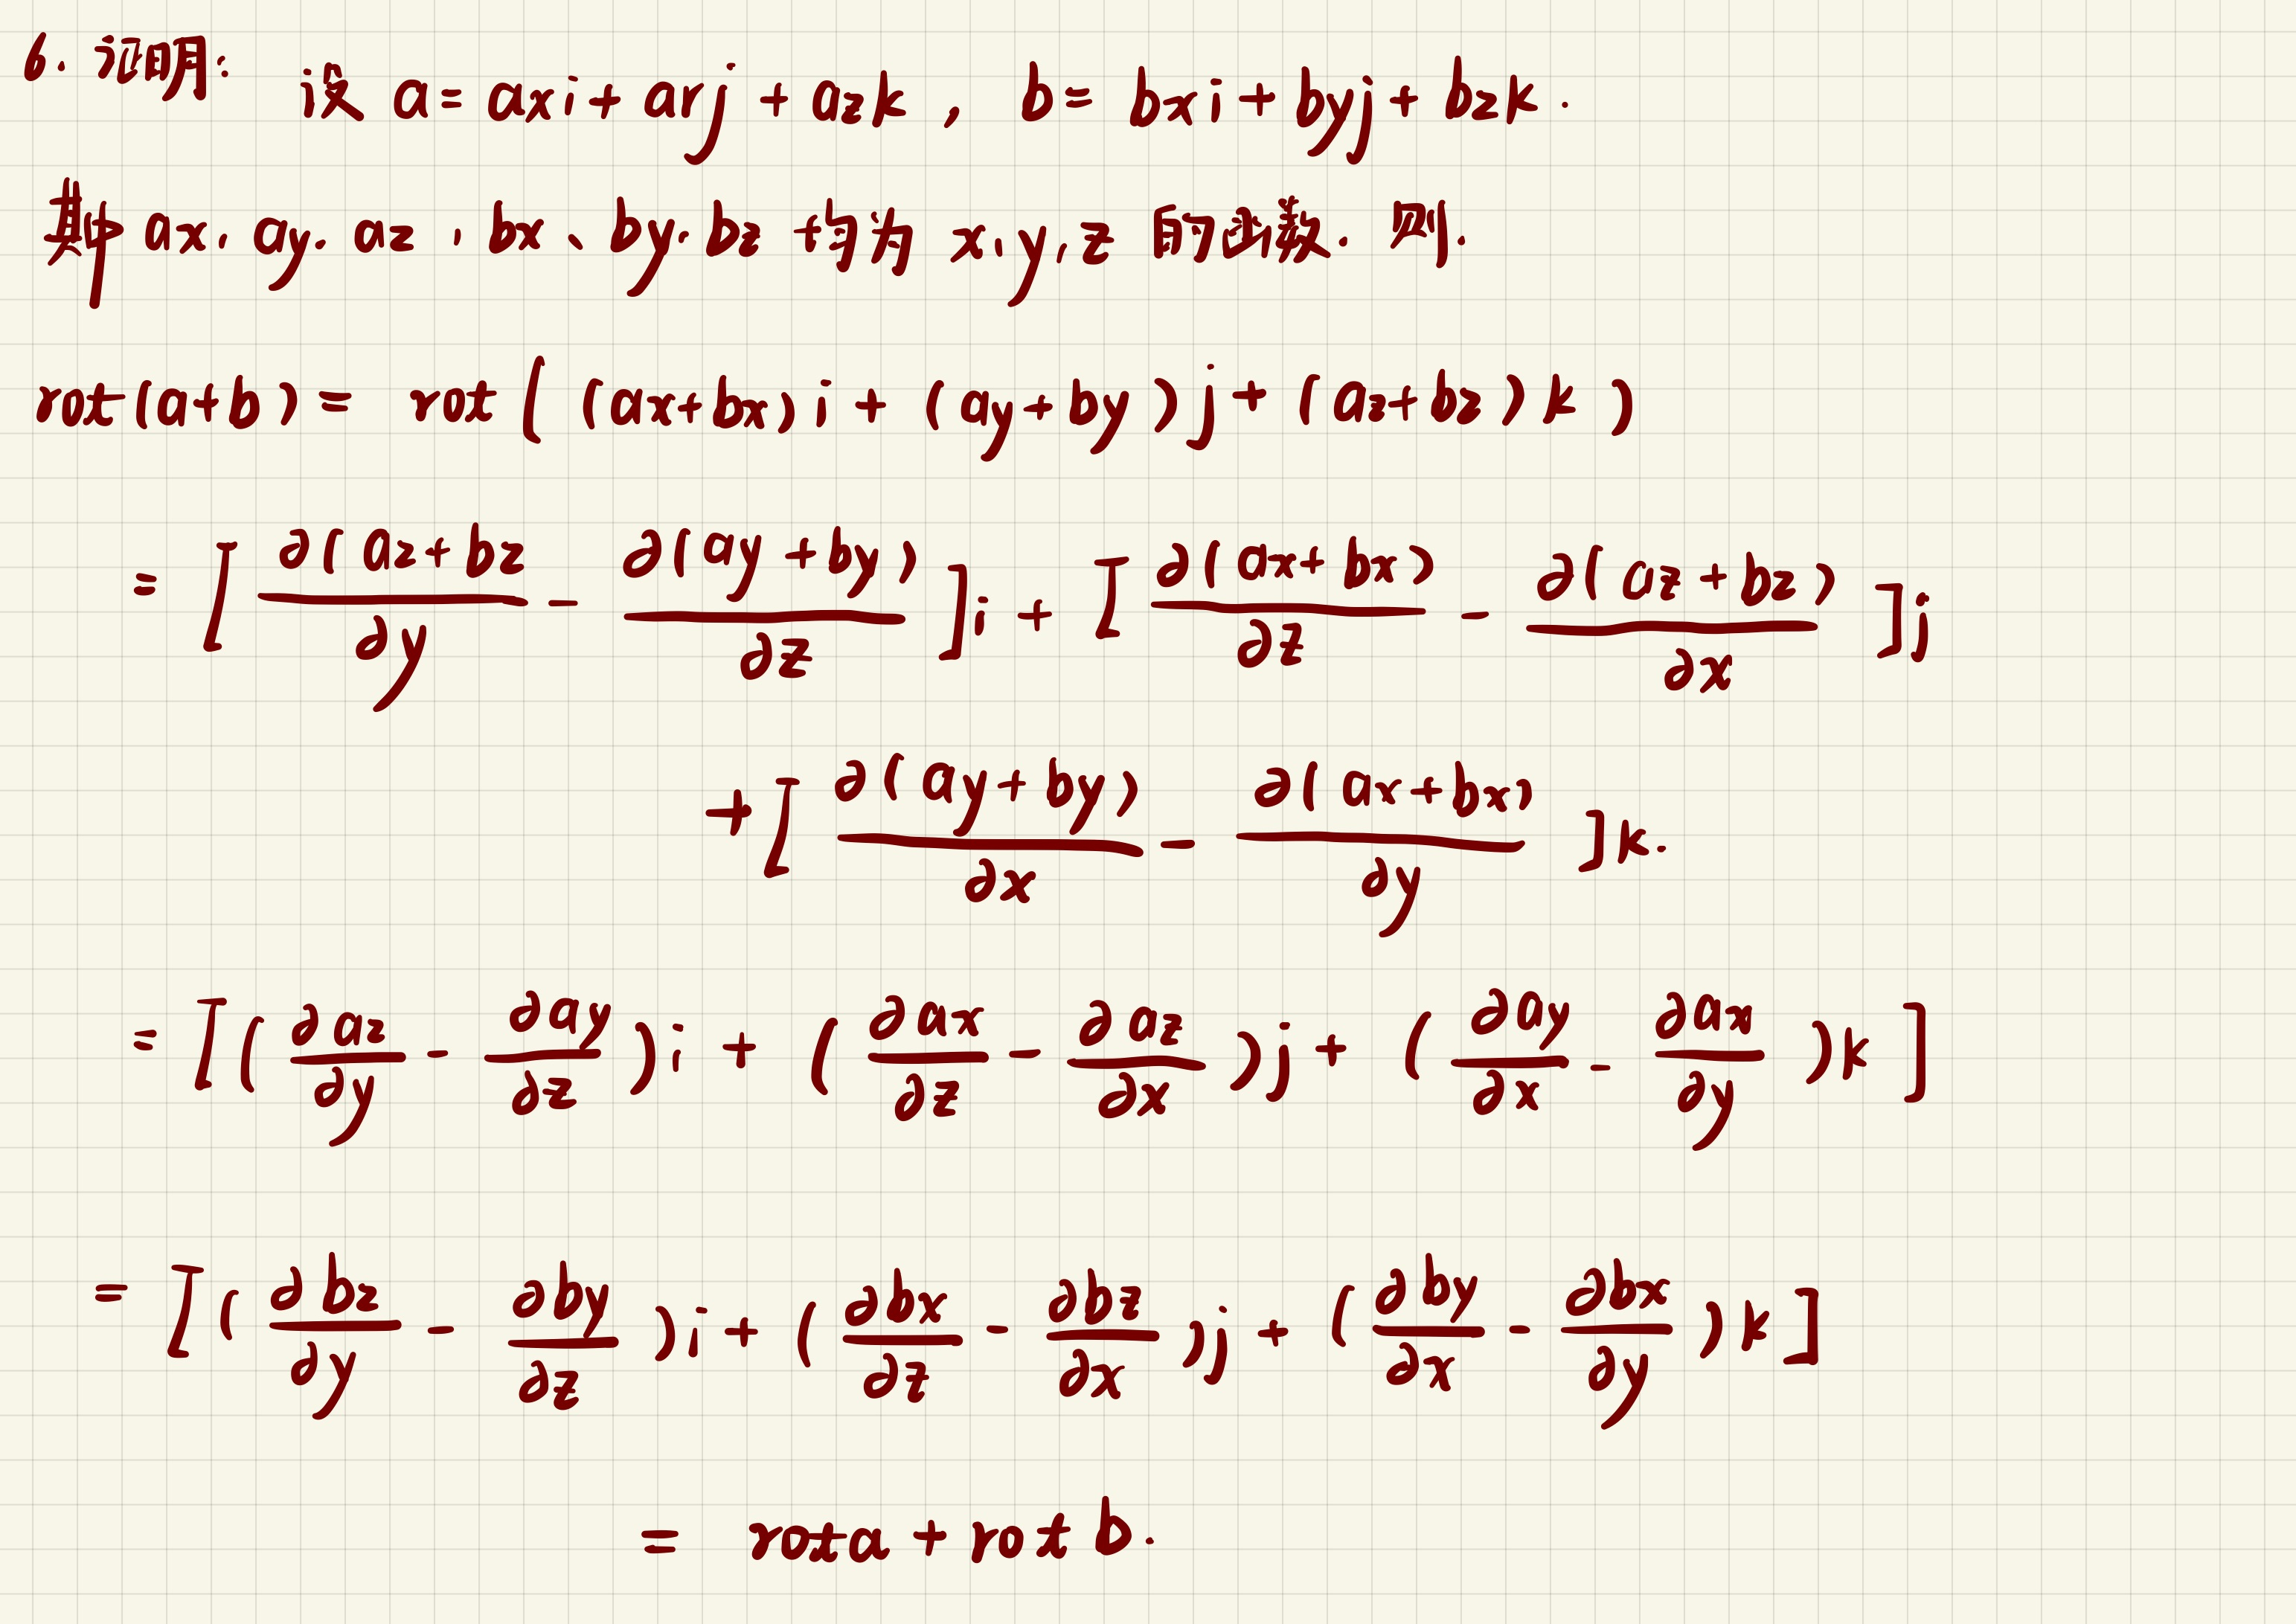 6. 证明: 设 a = axi + ayj + azk , b = bxi + byj + bzk .
其中 ax. ay. az , bx、by. bz 均为 x. y, z 的函数. 则.
rot(a+b) = rot ( (ax+bx)i + (ay+by)j + (az+bz)k )
= [ ∂(az+bz / ∂y − ∂(ay+by) / ∂z ]i + [ ∂(ax+bx) / ∂z − ∂(az+bz) / ∂x ]j
+ [ ∂(ay+by) / ∂x − ∂(ax+bx) / ∂y ]k.
= [( ∂az / ∂y − ∂ay / ∂z )i + ( ∂ax / ∂z − ∂az / ∂x )j + ( ∂ay / ∂x − ∂ax / ∂y )k ]
= [( ∂bz / ∂y − ∂by / ∂z )i + ( ∂bx / ∂z − ∂bz / ∂x )j + ( ∂by / ∂x − ∂bx / ∂y )k ]
= rota + rot b.